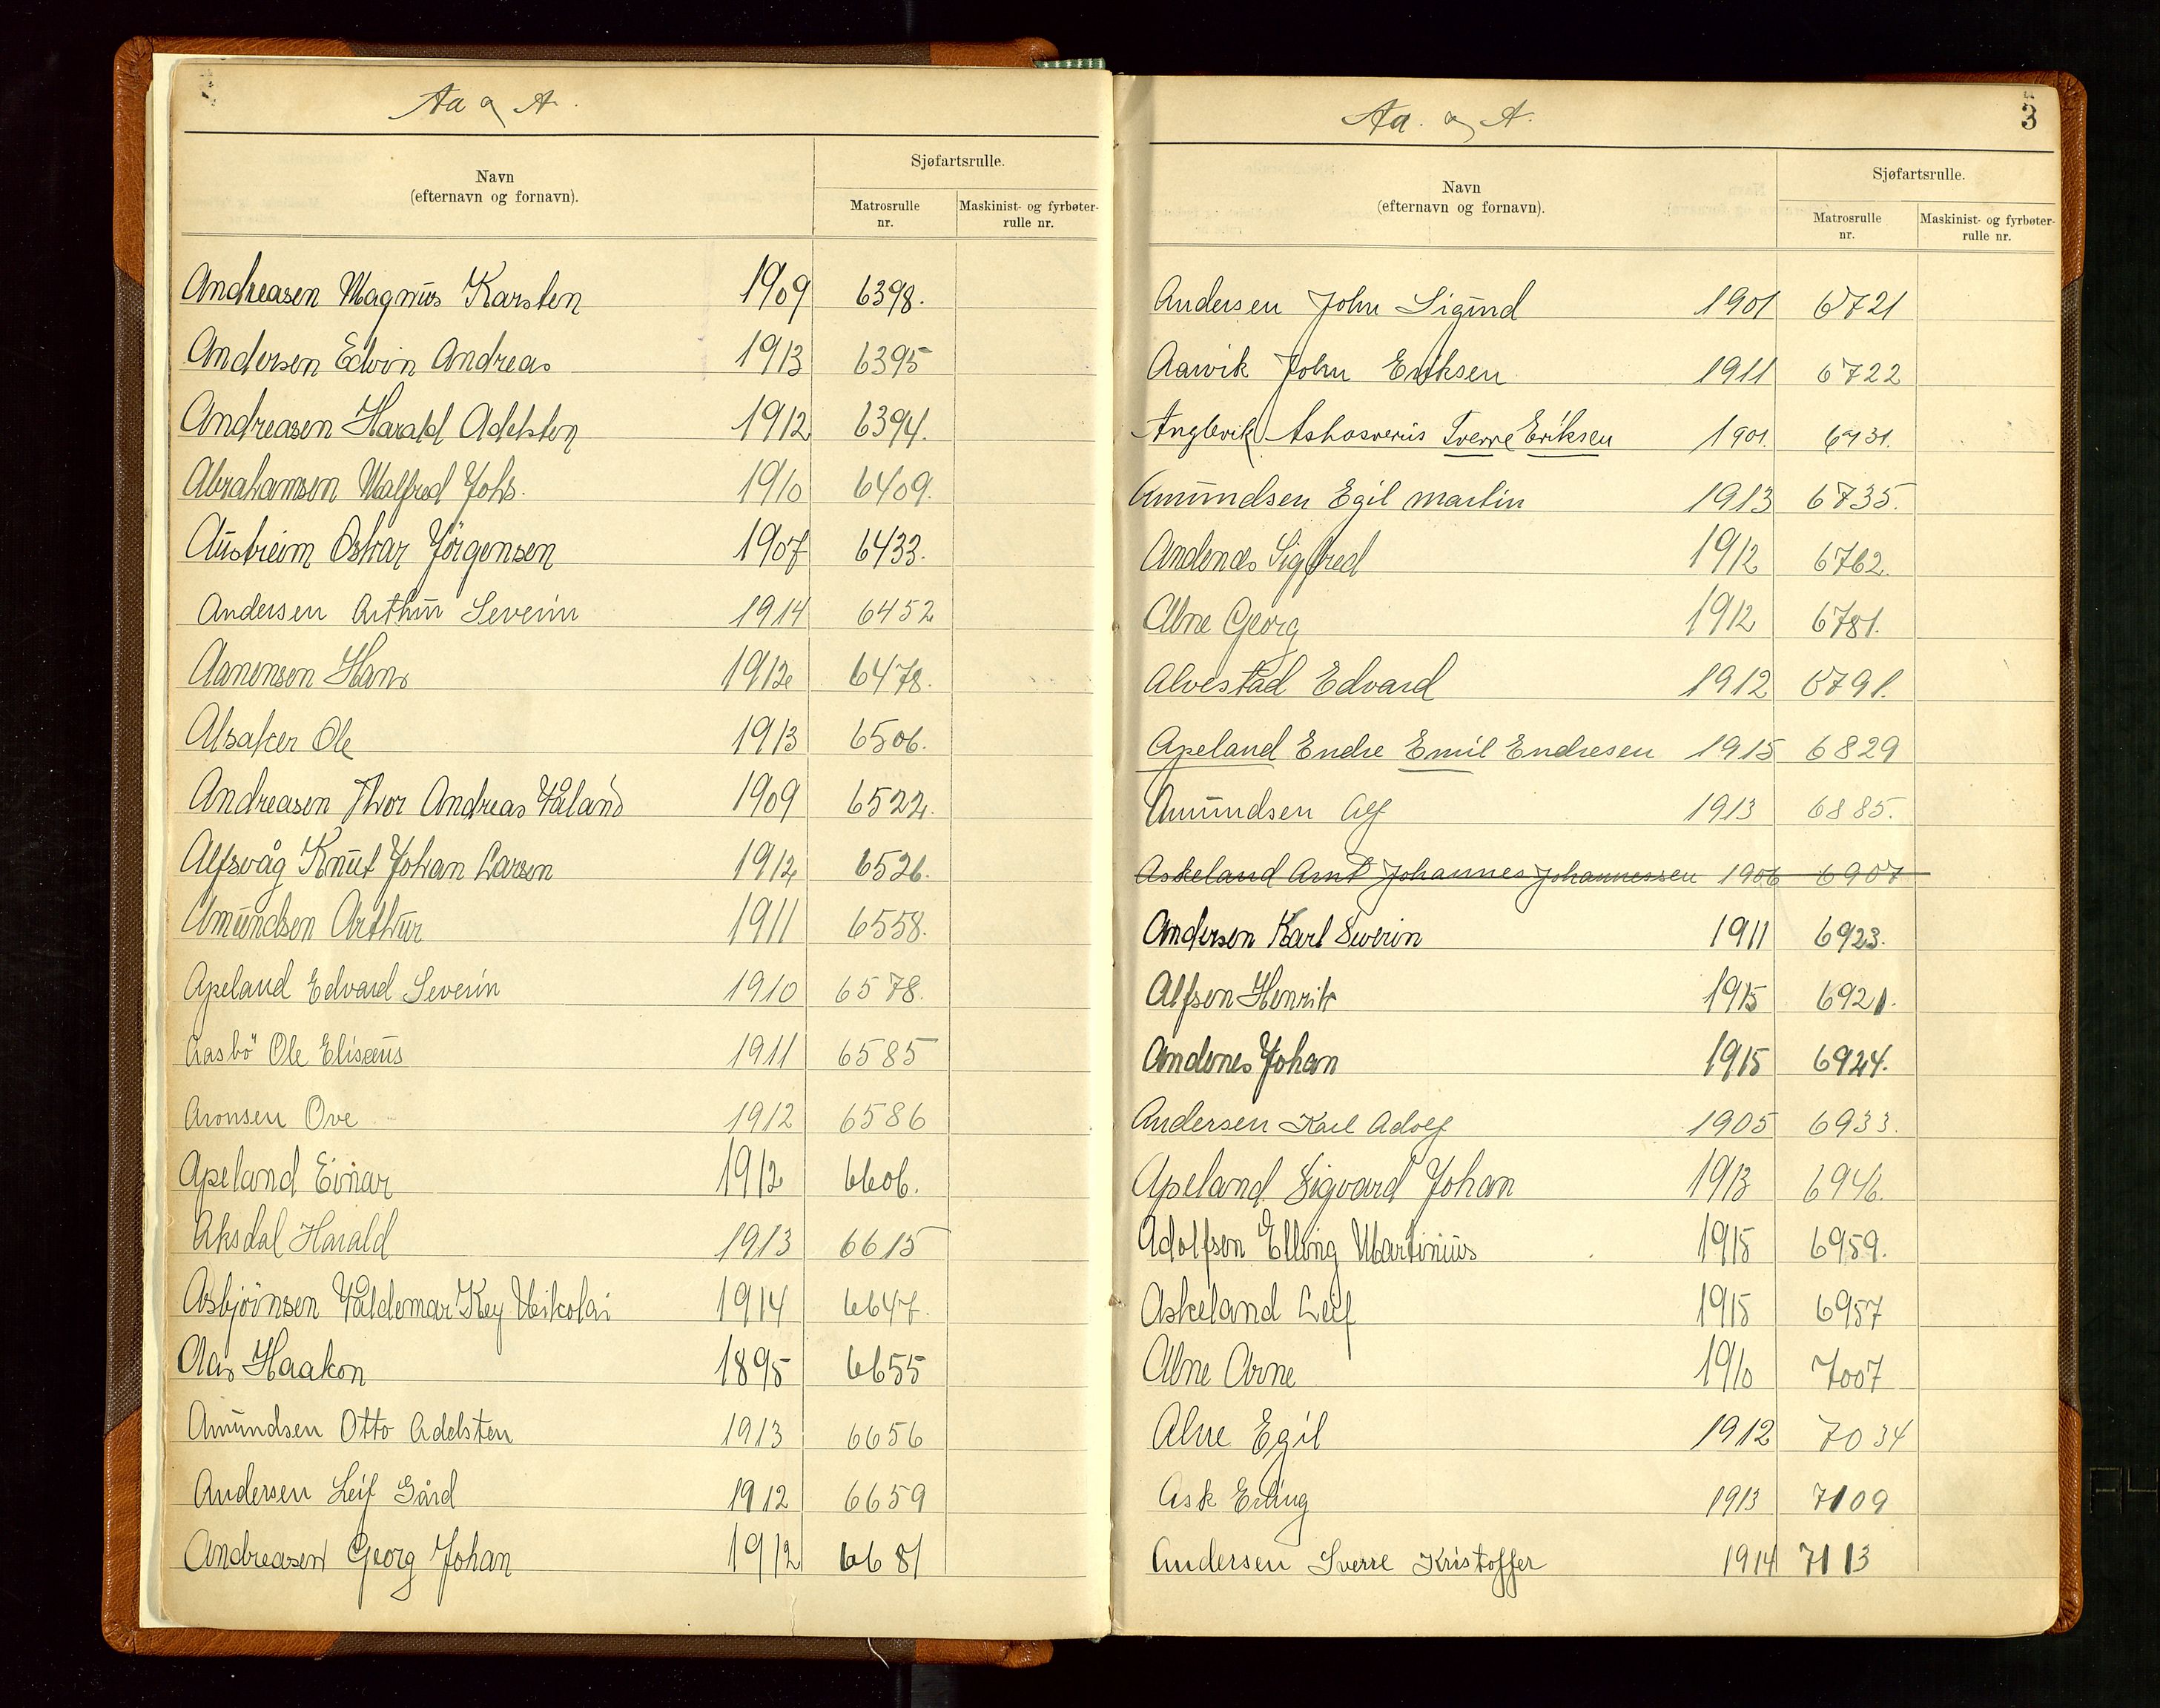 Aa og A.
Navn
(efternavn og fornavn).
Sjøfartsrulle.
Matrosrulle
nr.
Maskinist- og fyrbøter-
rulle nr.
Andreasen Magnus Karsten 1909 6398.
Andersen Edvin Andreas 1913 6395
Andreasen Harald Adelsten 1912 6394.
Abrahamsen Malfred Johs. 1910 6409.
Austreim Oskar Jörgensen 1907 6433.
Andersen Arthur Severin 1914 6452
Aanensen Hans 1912 6478.
Alsaker Ole 1913 6506.
Andreasen Thor Andreas Våland 1909 6522.
Alfsvåg Knut Johan Larsen 1912 6526.
Amundsen Arthur 1911 6558.
Apeland Edvard Severin 1910 6578.
Aasbö Ole Elisæus 1911 6585
Aronsen Ove 1912 6586
Apeland Einar 1912 6606.
Aksdal Harald 1913 6615
Asbjörnsen Valdemar Key Nikolai 1914 6647.
Aas Haakon 1895 6655
Amundsen Otto Adelsten 1913 6656
Andersen Leif Gård 1912 6659
Andreasen Georg Johan 1912 6681
Aa. og A.
3
Navn
(efternavn og fornavn).
Sjøfartsrulle.
Matrosrulle
nr.
Maskinist- og fyrbøter-
rulle nr.
Andersen John Sigmund 1901 6721
Aarvik John Eriksen 1911 6722
Anglevik Ashasverus Sverre Eriksen 1901. 6731.
Amundsen Egil Martin 1913 6735.
Andenæs Sigfred 1912 6762.
Alne Georg 1912 6781.
Alvestad Edvard 1912 6791.
Apeland Endre Emil Endresen 1915 6829
Amundsen Alf 1913 6885.
Askeland Arnt Johannes Johannessen 1906 6907
Andersen Karl Severin 1911 6923.
Alfsen Henrik 1915 6921.
Andenes Johan 1915 6924.
Andersen Karl Adolf 1905 6933.
Apeland Sigvard Johan 1913 6946.
Adolfsen Elling Martinius 1915 6959.
Askeland Leif 1915 6957
Alne Arne 1910 7007
Alne Egil 1912 7034
Ask Erling 1913 7109
Andersen Sverre Kristoffer 1914 7113